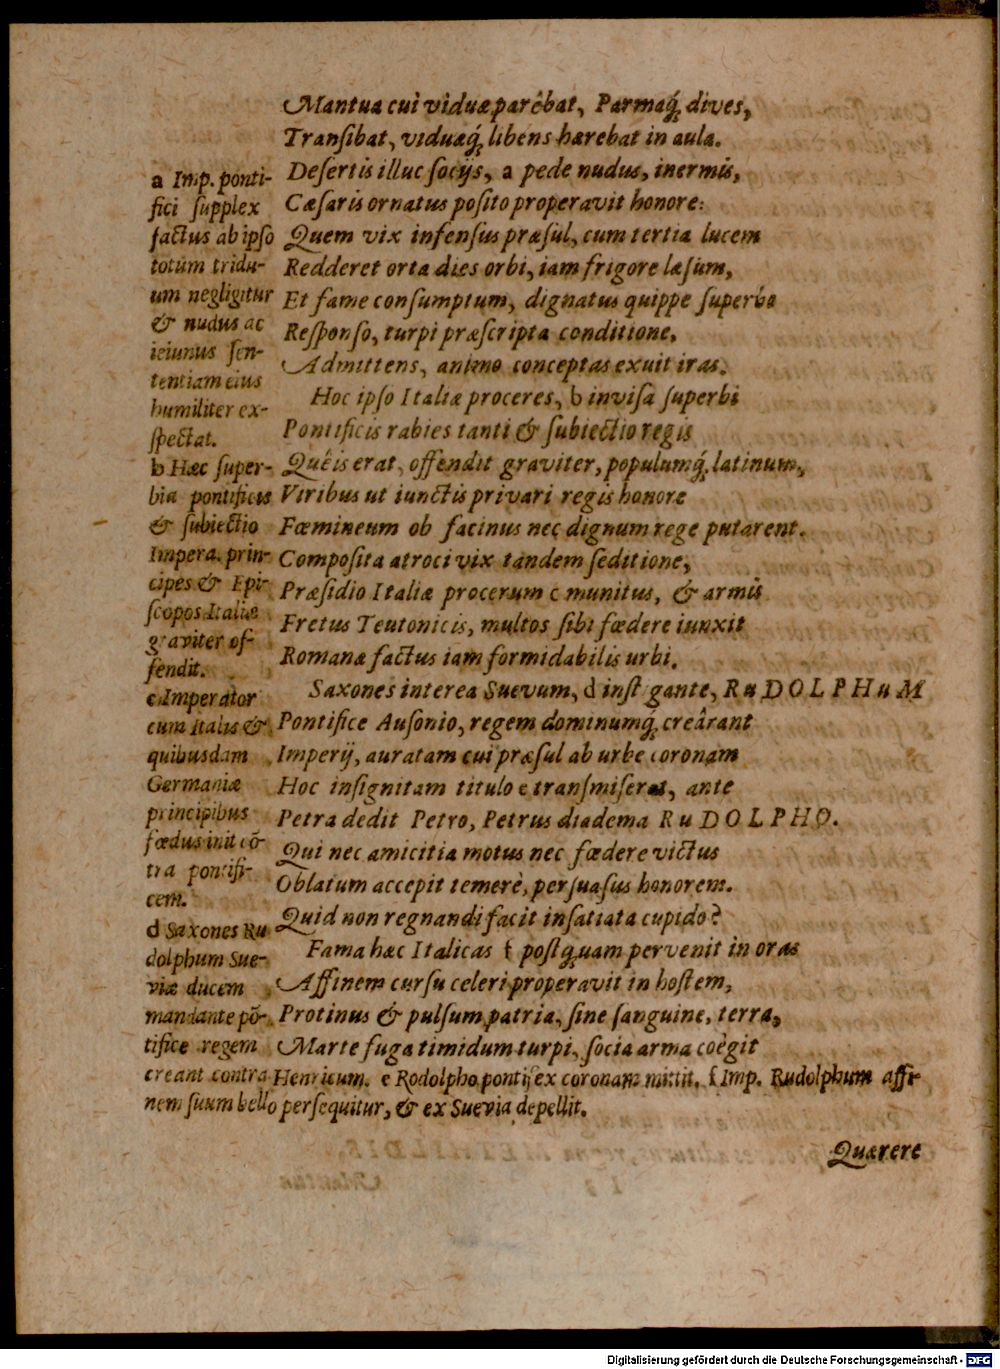 Mantua cui viduæ parêbat, Parmaq́; dives,
Tranſibat, viduæq́; libens hærebat in aula.
Deſertis illuc ſocijs, a pede nudus, inermis,
Cæſaris ornatus poſito properavit honore:
Quem vix infenſus præſul, cum tertia lucem
Redderet orta dies orbi, iam frigore læſum,
Et fame conſumptum, dignatus quippe ſuperbo
Reſponſo, turpi præſcripta conditione,
Admittens, animo conceptas exuit iras.
Hoc ipſo Italiæ proceres, b inviſa ſuperbi
Pontificis rabies tanti & ſubiectio regis
Quêis erat, offendit graviter, populumq́; latinum,
Viribus ut iunctis privari regis honore
Fœmineum ob facinus nec dignum rege putarent.
Compoſita atroci vix tandem ſeditione,
Præſidio Italiæ procerum c munitus, & armis
Fretus Teutonicis, multos ſibi fœdere iunxit
Romanæ factus iam formidabilis urbi.
Saxones interea Suevum, d inſtigante, RuDOLPHuM
Pontifice Auſonio, regem dominumq́; creârant
Imperij, auratam cui præſul ab urbe coronam
Hoc inſignitam titulo e tranſmiſerat, ante
Petra dedit Petro, Petrus diadema RuDOLPHO.
Qui nec amicitia motus nec fœdere victus
Oblatum accepit temerè, perſuaſus honorem.
Quid non regnandi facit inſatiata cupido?
Fama hæc Italicas f poſtquam pervenit in oras
Affinem curſu celeri properavit in hoſtem,
Protinus & pulſum patria, ſine ſanguine, terra,
Marte fuga timidum turpi, ſocia arma coègit
a Imp. ponti-
fici ſupplex
factus ab ipſo
totum tridu-
um negligitur
& nudus ac
ieiunus ſen-
tentiam eius
humiliter ex-
ſpectat.
b Hæc ſuper-
bia pontificis
& ſubiectio
Impera. prin-
cipes & Epi-
ſcopos Italiæ
graviter of-
fendit.
c Imperator
cum Italis &
quibusdam
Germaniæ
principibus
fœdus init cō-
tra pontifi-
cem.
d Saxones Ru
dolphum Sue-
viæ ducem
mandante pō-
tifice regem
creant contra Henricum. e Rodolpho pontifex coronam mittit. f Imp. Rudolphum affi-
nem ſuum bello perſequitur, & ex Suevia depellit.
Quærere
Digitalisierung gefördert durch die Deutsche Forschungsgemeinschaft - DFG